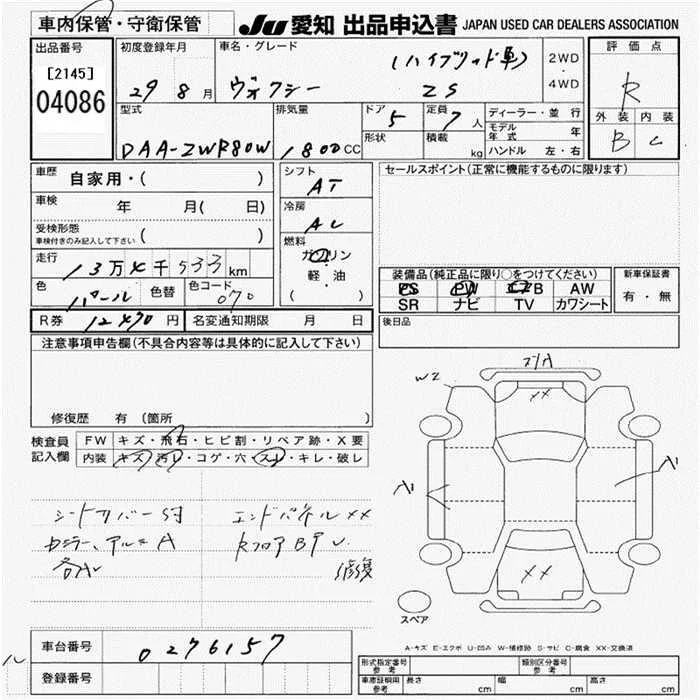 車内保管・守衛保管
JU 愛知 出品申込書 JAPAN USED CAR DEALERS ASSOCIATION
出品番号
[2145]
04086
初度登録年月
29 8 月
車名・グレード
ヴォクシー
(ハイブリッド車)
ZS
2WD
・
4WD
評価点
R
外装 内装
B C
型式
DAA-ZWR80W
排気量
1800 CC
ドア 5
定員 7 人
形状
積載 kg
ディーラー・並行
モデル年式 年
ハンドル 左・右
車歴 自家用・( )
車検 年 月( 日)
受検形態
車検付きのみ記入して下さい ( )
走行 13万4千533 km
色 パール 色替 色コード 070
R券 12470 円 名変通知期限 月 日
シフト
AT
冷房
AC
燃料
ガソリン
軽・油
( )
セールスポイント(正常に機能するものに限ります)
装備品(純正品に限り○をつけてください)
PS PW エアB AW
SR ナビ TV カワシート
新車保証書
有・無
後日品
注意事項申告欄(不具合内容等は具体的に記入して下さい)
修復歴 有 (箇所
検査員
記入欄
FW キズ・飛石・ヒビ割・リペア跡・X要
内装 キズ・汚れ・コゲ・穴・スレ・キレ・破レ
シートカバー付
エンドパネルXX
カミラー、アルミA
RフロアBアU
各AU
修復
W2
XX
A1
A1
XX
スペア
A-キズ E-エクボ U-凹み W-補修跡 S-サビ C-腐食 XX-交換済
車台番号 0276157
登録番号
形式指定番号
参考
類別区分番号
参考
車庫証明用
参考
長さ cm 幅 cm 高さ cm